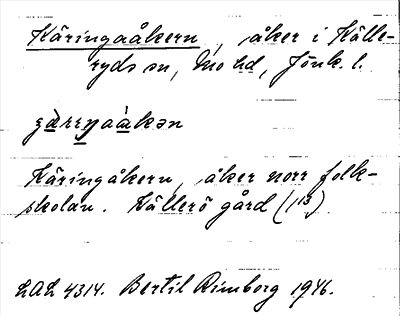 Käringaåkern, åker i Källe-
ryds sn, Mo hd, Jönk. l.
Käringåkern, åker norr folk-
skolan. Källerö gård (1¹³).
LAL 4314. Bertil Rimborg 1946.